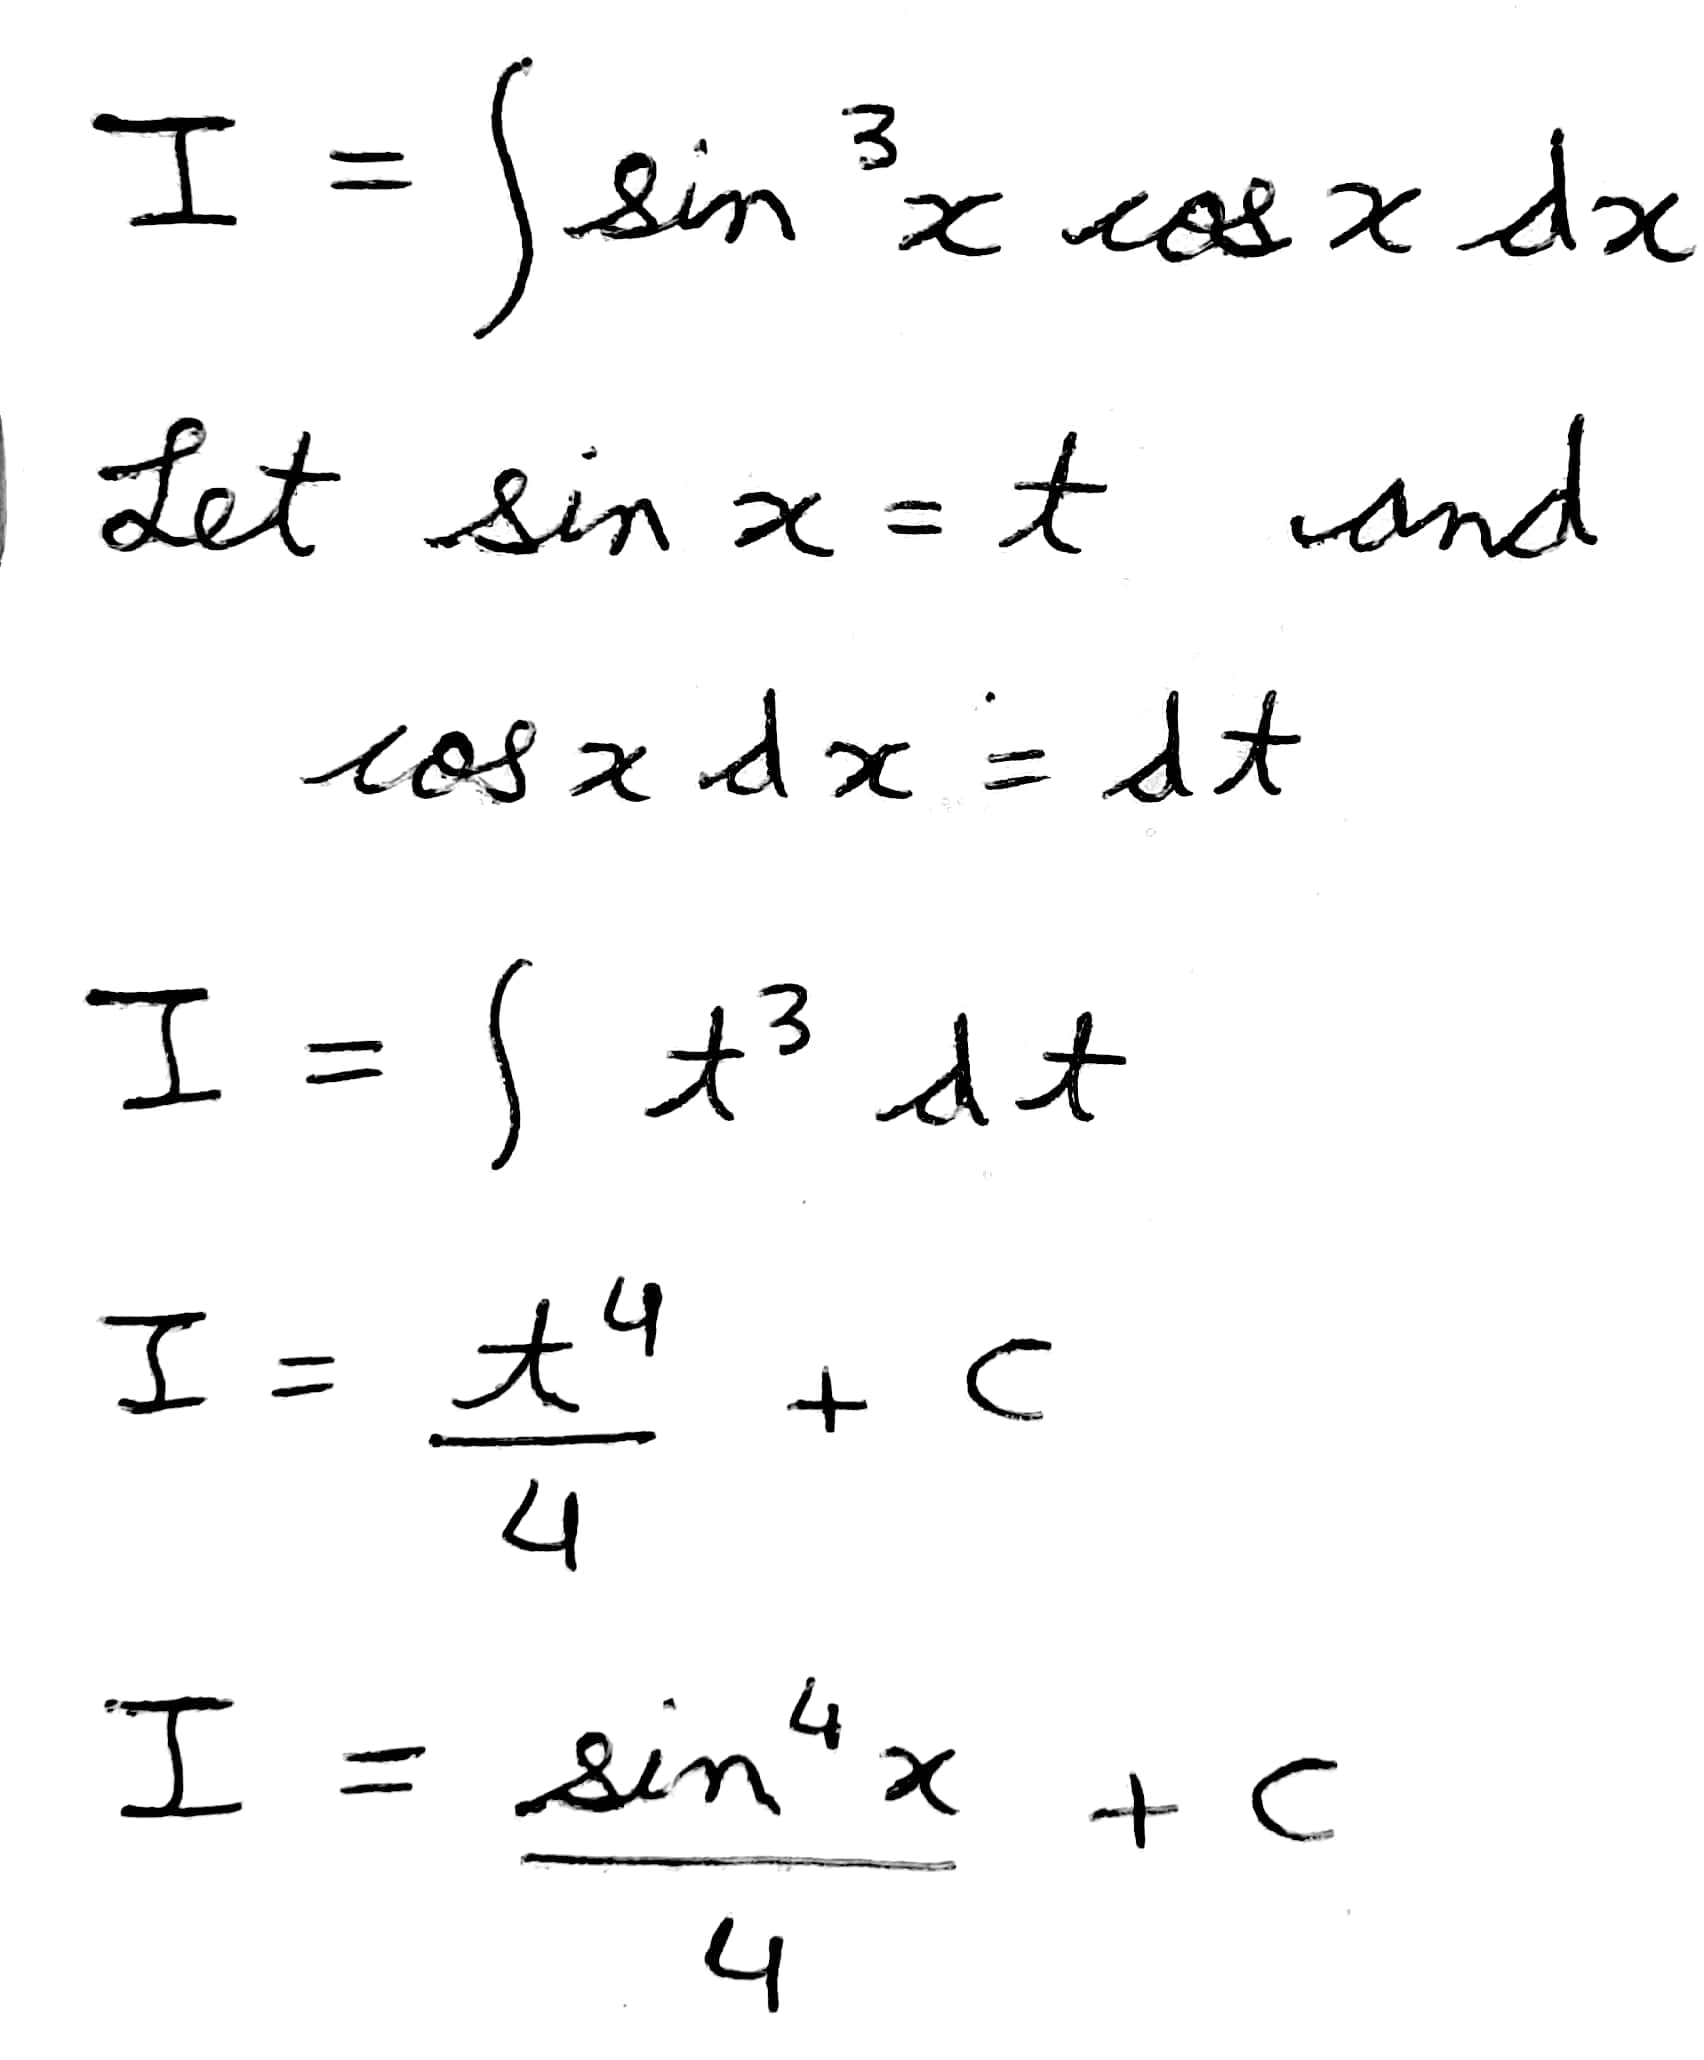 I = ∫ sin³x cos x dx
Let sin x = t and
cos x dx = dt
I = ∫ t³ dt
I = t⁴/4 + c
I = sin⁴x/4 + c